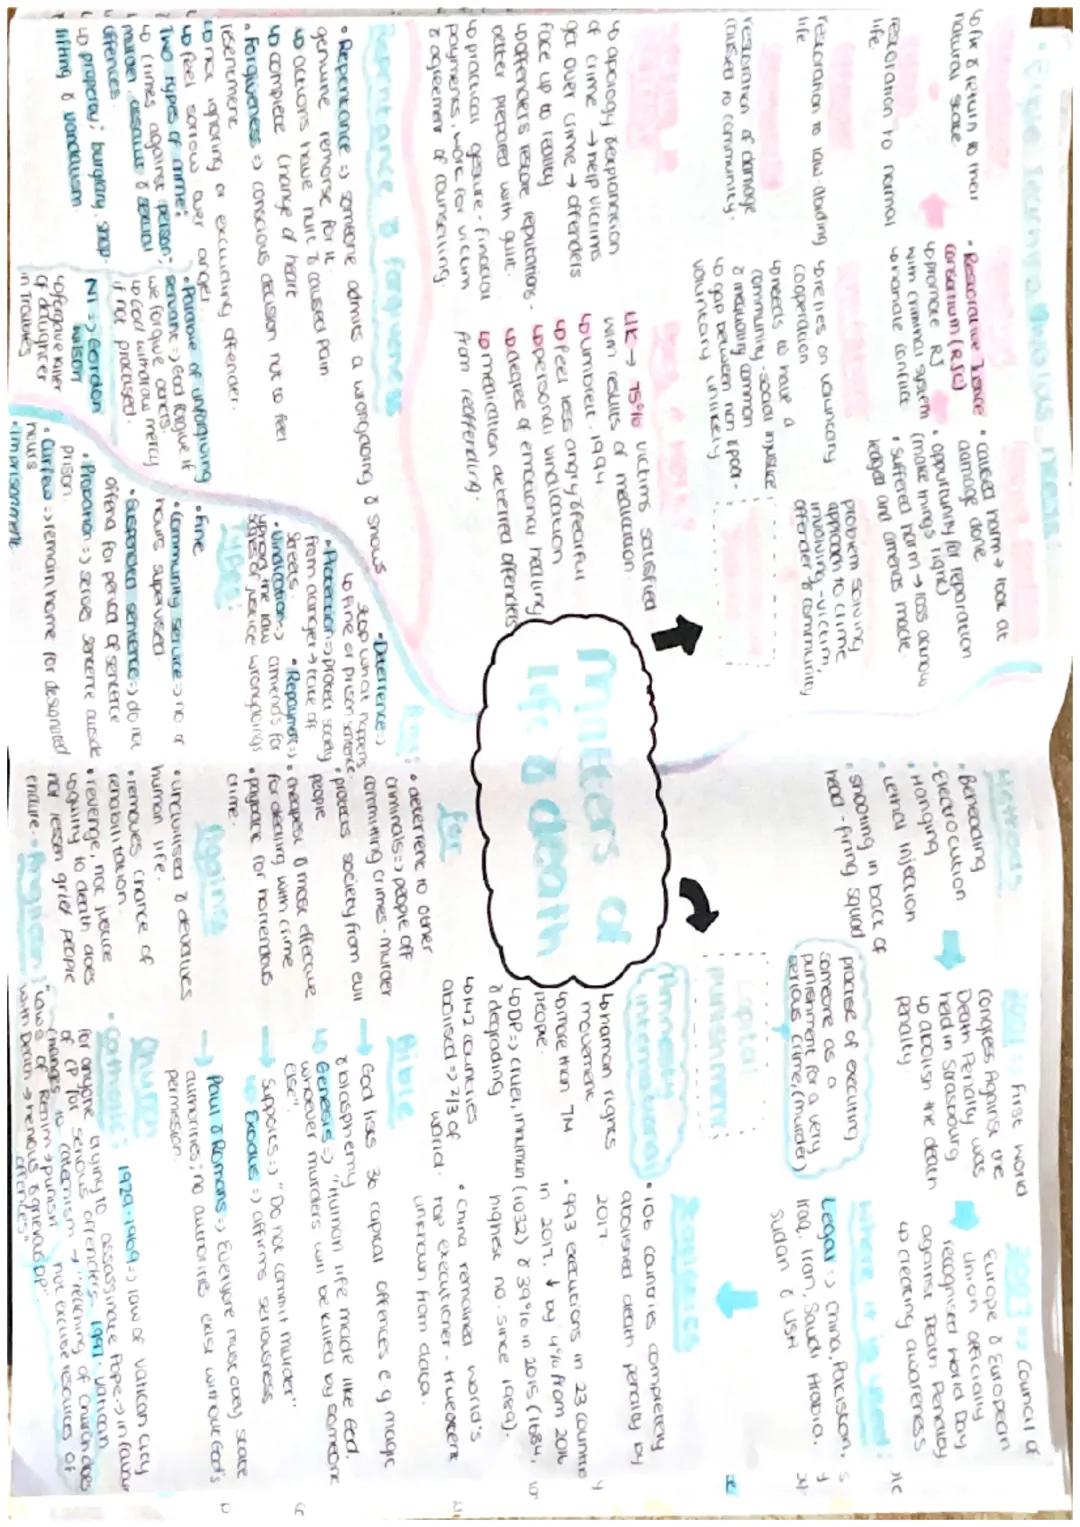 Matters of
life & death
↳ fix & return to their
natural state
restoration to normal
life
restoration to law abiding
life
restoration of damage
caused to community.
• Restorative Justice
Consortium (RJC)
↳ promote RJ
with criminal system
↳ handle conflict
↳ relies on voluntary
cooperation
↳ needs to have a
community - social injustice
& inequality common
↳ gap between rich & poor -
voluntary unlikely
• caused harm → look at
damage done
• opportunity for reparation
(make things right)
• suffered harm → loss acknow
ledged and amends made
problem solving
approach to crime
involving - victim,
offender & community
↳ apology & explanation
of crime → help victims
get over crime → offenders
face up to reality
↳ offenders restore reputations -
better prepared with guilt.
↳ practical gesture - financial
payments, work for victim
& agreement of counselling.
UK → 75% victims satisfied
with results of mediation
↳ Umbreit - 1994
↳ feel less angry & fearful
↳ personal vindication
↳ degree of emotional healing
↳ mediation deterred offenders
from reoffending.
Repentance & forgiveness
• Repentance => someone admits a wrongdoing & shows
genuine remorse for it.
↳ actions have hurt & caused pain
↳ complete change of heart
• Forgiveness => conscious decision not to feel
resentment
↳ not ignoring or excusing offender.
↳ feel sorrow over anger
Two types of crime:
↳ crimes against person:
murder, assault & sexual
offences.
↳ property: burglary, shop
lifting & vandalism
• Parable of unforgiving
servant => God forgive if
we forgive others.
↳ God withdraw mercy
if not practised.
NI => Gordon
Wilson
↳ forgave killer
of daughter
in Troubles
Aims:
• Deterrence =>
stop what happens
↳ fine or prison sentence
• Protection => protect society
from danger → take off
streets
• Repayment =>
amends for
wrongdoings
• Vindication =>
uphold the law
Types:
• Fine
• Community service => no of
hours supervised
• Suspended sentence => do not
offend for period of sentence
• Probation => serve sentence outside
prison
• Curfew => remain home for designated
hours
• Imprisonment
Methods
• Beheading
• Electrocution
• Hanging
• Lethal injection
• Shooting in back of
head - firing squad
2001 => First World
Congress Against the
Death Penalty was
held in Strasbourg
↳ abolish the death
penalty
2007 => Council of
Europe & European
Union officially
recognised World Day
against Death Penalty
↳ creating awareness
Capital
punishment
practise of executing
someone as a
punishment for a very
serious crime (murder)
Where it is used:
Legal => China, Pakistan,
Iraq, Iran, Saudi Arabia,
Sudan & USA
Amnesty
international
↳ human rights
movement
↳ more than 7M
people.
↳ DP => cruel, inhuman
& degrading
↳ 142 countries
abolished => 2/3 of
world.
Statistics
• 106 countries completely
abolished death penalty by
2017.
• 993 executions in 23 countries
in 2017. ↓ by 4% from 2016
(1032) & 39% in 2015 (1634,
highest no. since 1989).
• China remained world's
top executioner - true extent
unknown from data.
For
• deterrent to other
criminals => people off
committing crimes - murder
• protects society from evil
people
• cheapest & most effective
for dealing with crime
• payback for horrendous
crime.
Against
• uncivilised & devalues
human life.
• removes chance of
rehabilitation.
• revenge, not justice
↳ guilty to death does
not lessen grief people
endure.
Bible
→ God lists 36 capital offences eg magic
& blasphemy
↳ Genesis => "Human life made like God,
whoever murders will be killed by someone
else".
→ Supports => "Do not commit murder"
↳ Exodus => affirms seriousness
→ Paul & Romans => Everyone must obey state
authorities; no authorities exist without God's
permission.
Church
• Catholic: 1929-1969 => law of Vatican city
for anyone trying to assassinate Pope => in favour
of CP for serious offenders. 1997 - Vatican
changes to catechism → "teaching of Church does
not exclude recourse of DP"
• Anglican: "Laws of Realm → punish
with Death → heinous & grievous
offences"